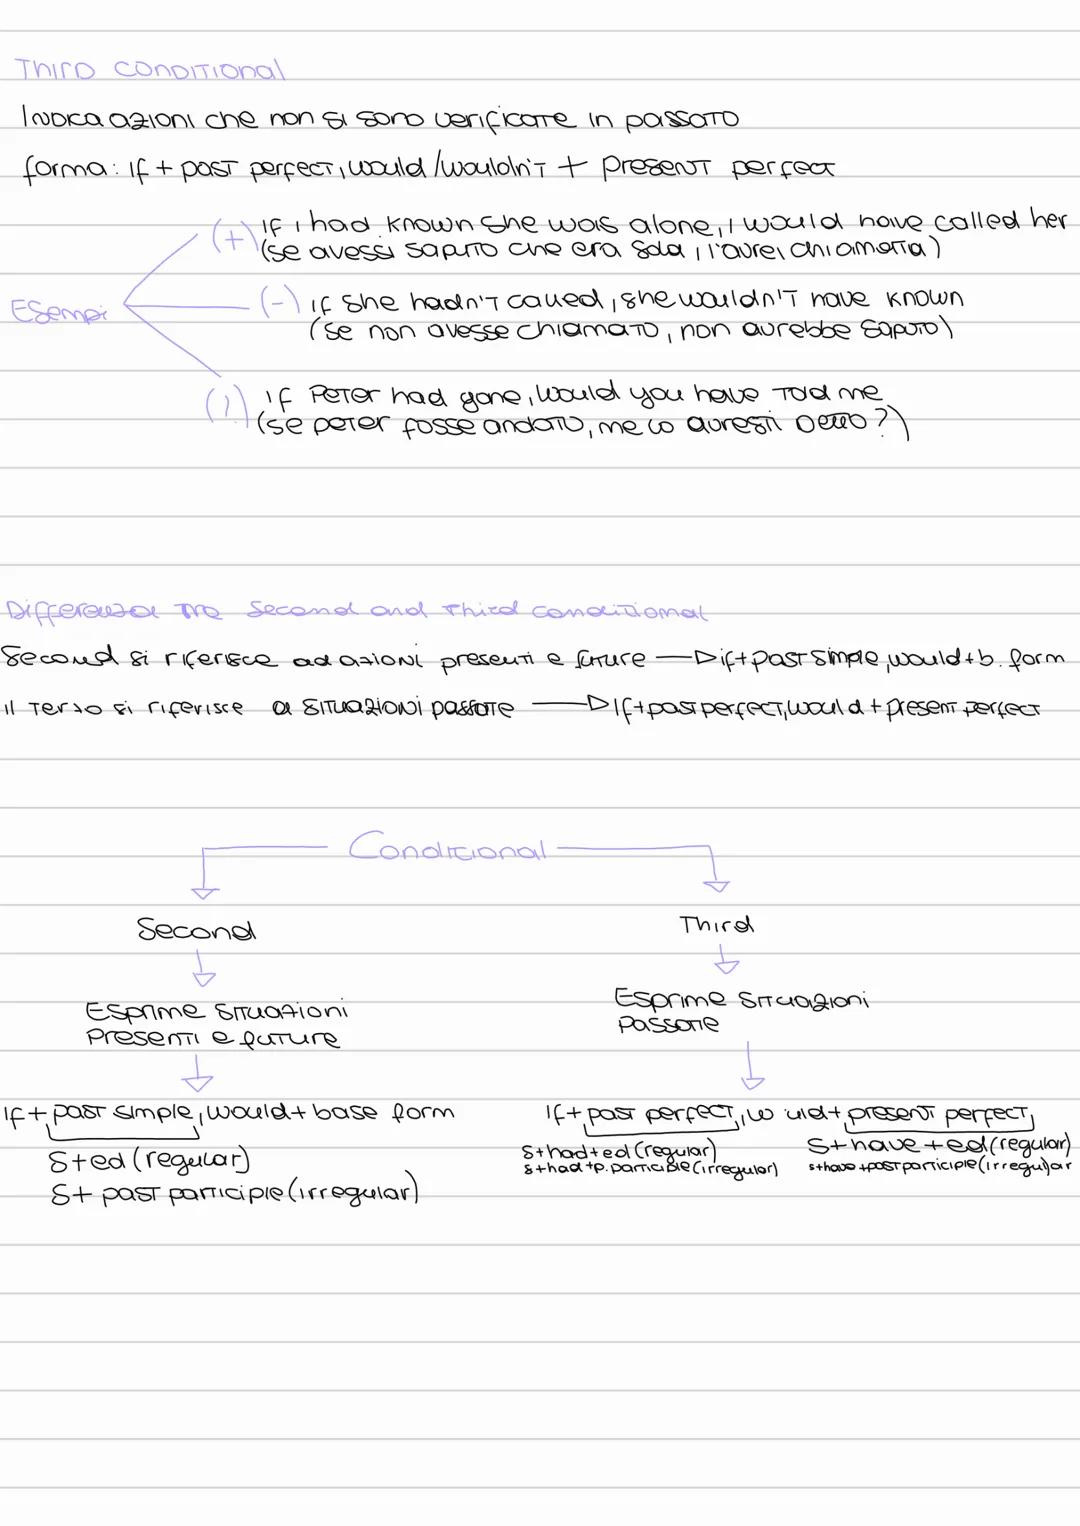 Third conditional
Indica azioni che non si sono verificate in passato
forma: If + past perfect, would/wouldn't + present perfect
(+) If i had known she was alone, I would have called her
(se avessi saputo che era sola, l'avrei chiamata)
Esempi
(-) if she hadn't called, she wouldn't have known
(se non avesse chiamato, non avrebbe saputo)
(?) if Peter had gone, would you have told me
(se peter fosse andato, me lo avresti detto?)
Differenza tra Second and third conditional
Second si riferisce ad azioni presenti e future → if+past simple, would+b. form
il terzo si riferisce a situazioni passate → If+past perfect, would+present perfect
Conditional
Second Third
Esprime situazioni
Presenti e future
Esprime situazioni
passate
If+past simple, would+base form
S+ed (regular)
S+ past participle (irregular)
If+past perfect, w uld+present perfect,
S+had+ed (regular)
S+had+p. participle (irregular)
S+have+ed (regular)
S+have+past participle (irregular